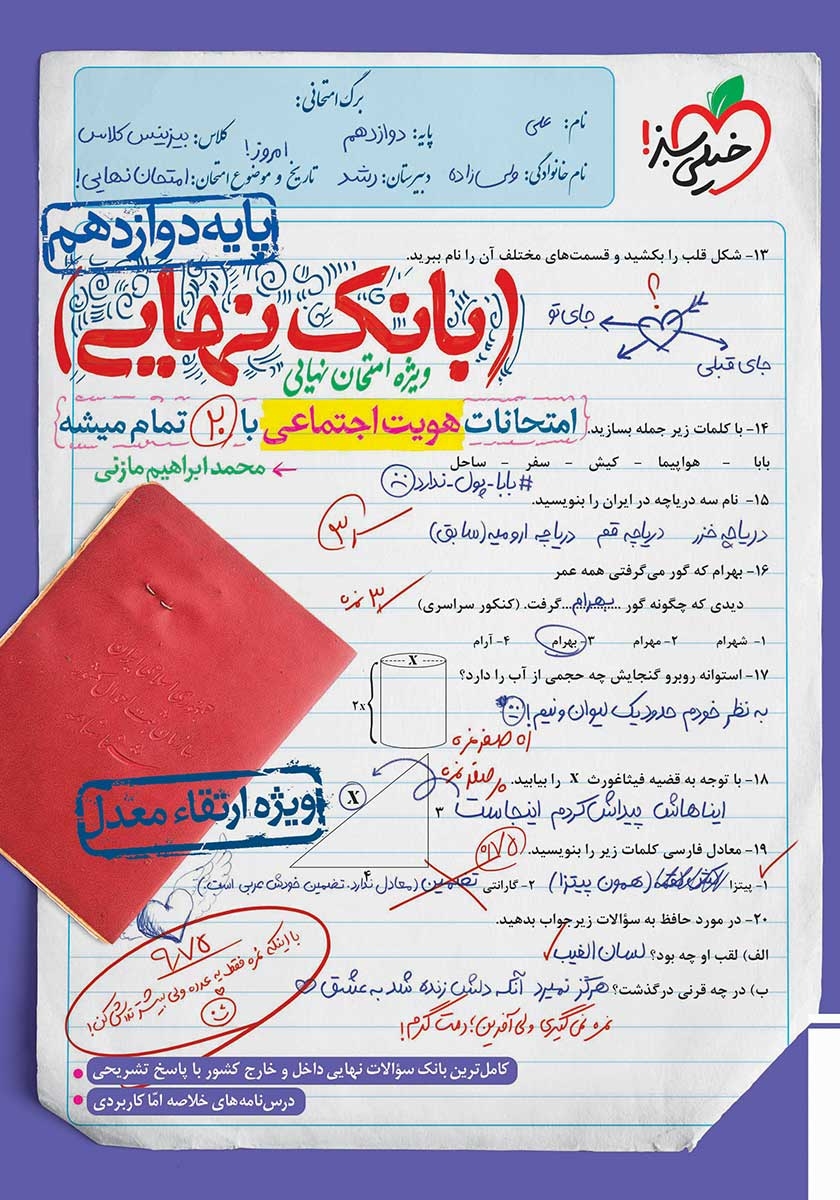 برگ امتحانی:
نام: علی
پایه: دوازدهم
کلاس: بیزینس کلاس
نام خانوادگی: ولی زاده
دبیرستان: رشد
تاریخ و موضوع امتحان: امروز! امتحان نهایی!
خیلی سبز!
پایه دوازدهم
(بانک نهایی)
ویژه امتحان نهایی
امتحانات هویت اجتماعی با ۲۰ تمام میشه
محمد ابراهیم مازنی
۱۳- شکل قلب را بکشید و قسمت‌های مختلف آن را نام ببرید.
؟
جای تو
جای قبلی
۱۴- با کلمات زیر جمله بسازید.
بابا - هواپیما - کیش - سفر - ساحل
#بابا-پول-ندارد
۱۵- نام سه دریاچه در ایران را بنویسید.
دریاچه خزر دریاچه قم دریاچه ارومیه (سابق)
۱۶- بهرام که گور می‌گرفتی همه عمر
دیدی که چگونه گور ...بهرام... گرفت. (کنکور سراسری)
۳ نمره
۱- شهرام ۲- مهرام ۳- بهرام ۴- آرام
۱۷- استوانه روبرو گنجایش چه حجمی از آب را دارد؟
X
۲x
به نظر خودم حدود یک لیوان و نیم!
اه صفر نمره
۱۸- با توجه به قضیه فیثاغورث X را بیابید.
صفر نمره
ایناهاش پیداش کردم اینجاست
X
۳
۴
۱۹- معادل فارسی کلمات زیر را بنویسید.
۰/۷۵
۱- پیتزا (همون پیتزا) ۲- گارانتی تضمین (معادل ندارد. تضمین خودش عربی است.)
۲۰- در مورد حافظ به سؤالات زیر جواب بدهید.
الف) لقب او چه بود؟ لسان الغیب
ب) در چه قرنی درگذشت؟ هرگز نمیرد آنکه دلش زنده شد به عشق
نمره نمی‌گیری ولی آفرین؛ دمت گرم!
۹/۷۵
با اینکه نمره فقط یه عدده ولی بیشتر تلاش کن!
ویژه ارتقاء معدل
کامل‌ترین بانک سؤالات نهایی داخل و خارج کشور با پاسخ تشریحی
درس‌نامه‌های خلاصه امّا کاربردی